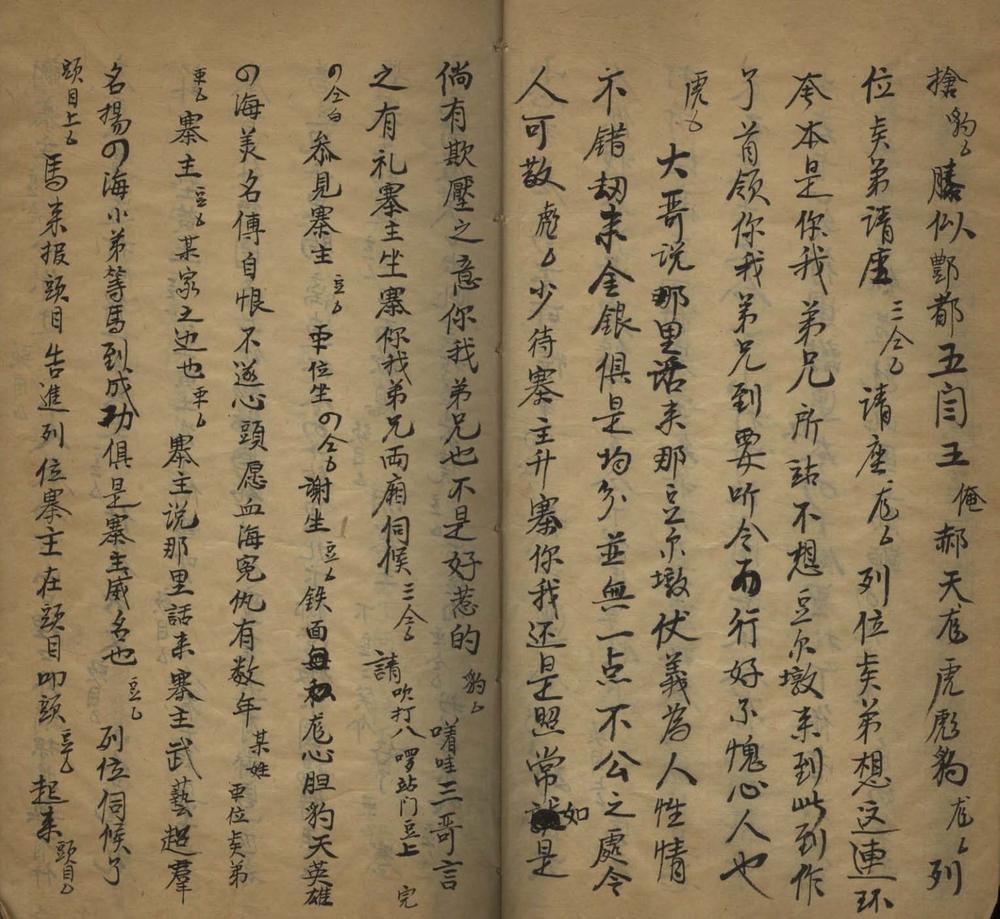 搶豹白勝似酆都五閆王俺郝天龙虎彪豹龙白列
位貟弟請座三仝白請座龙白列位貟弟想这連环
套本是你我弟兄所站不想豆尔墩来到此到作
了首領你我弟兄到要听令而行好不愧心人也
虎白大哥说那里话来那豆尔墩伏義為人性情
不錯刧来金銀俱是均分並無一点不公之處令
人可敬彪白少待寨主升寨你我还是照常如是
倘有欺壓之意你我弟兄也不是好惹的豹白嗜哇三哥言
之有礼寨主坐寨你我弟兄両廂伺候三仝白請吹打八啰站门豆上完
四仝白叅見寨主豆白両位坐四仝白謝坐豆白鉄面無私龙心胆豹天英雄
四海美名傳自恨不遂心頭愿血海寃仇有数年某姓
寨主豆白某家之过也寨主说那里話来寨主武藝超羣
名揚四海小弟等馬到成功俱是寨主威名也豆白列位伺候了
頭目上白馬来报頭目告進列位寨主在頭目叩頭豆白起来頭目白